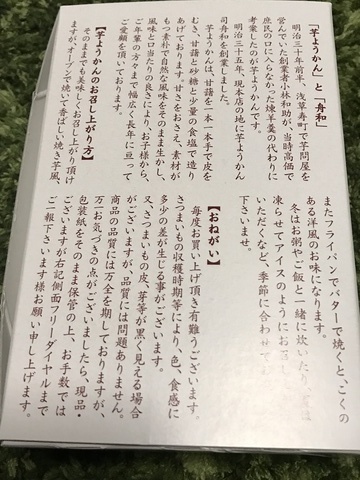 「芋ようかん」と「舟和」
明治三十年前半、浅草寿町で芋問屋を
営んでいた創業者小林和助が、当時高価で
庶民の口に入らなかった煉羊羹の代わりに
考案したのが芋ようかんです。
明治三十五年、現本店の地に芋ようかん
司舟和を創業しました。
芋ようかんは、甘藷を一本一本手で皮を
むき、甘藷と砂糖と少量の食塩で造り
あげております。甘さをおさえ、素材が
もつ素朴で自然な風味をそのまま生かし、
風味と口当たりの良さにより、お子様から、
ご年輩の方々まで幅広く長年に亘って
ご愛顧を頂いております。
【芋ようかんのお召し上がり方】
そのままでも美味しくお召し上がり頂け
ますが、オーブンで焼いて香ばしい焼き芋風、
またフライパンでバターで焼くと、こくの
ある洋風のお味になります。
冬はお粥やご飯と一緒に炊いたり、
凍らせてアイスのようにお
いただくなど、季節に合わせて
下さいませ。
【おねがい】
毎度お買い上げ頂き有難うございます。
さつまいもの収穫時期等により、色、食感に
多少の差が生じる事がございます。
又、さつまいもの皮、芽等が黒く見える場合
がございますが、品質には問題ありません。
商品の品質には万全を期しておりますが、
万一お気づきの点がございましたら、現品・
包装紙をそのまま保管の上、お手数では
ございますが右記側面フリーダイヤルまで
ご一報下さいます様お願い申し上げます。